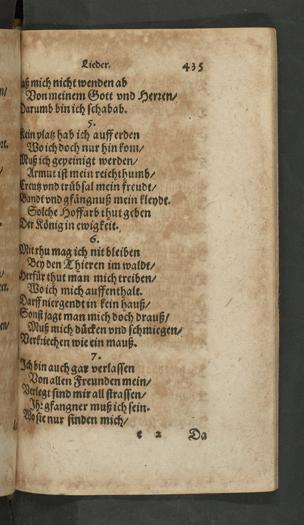 Lieder. 435
aß mich nicht wenden ab
Von meinem Gott vnd Herren/
Darumb bin ich schabab.
5.
Kein platz hab ich auff erden
Wo ich doch nur hin kom/
Muß ich gepeinigt werden/
Armut ist mein reichthumb/
Creutz vnd trübsal mein freudt/
Bandt vnd gfängnuß mein kleydt.
Solche Hoffarb thut geben
Der König in ewigkeit.
6.
Mit rhu mag ich nit bleiben
Bey den Thieren im waldt/
Herfür thut man mich treiben/
Wo ich mich auffenthalt.
Darff niergendt in kein hauß/
Sonst jagt man mich doch drauß/
Muß mich dücken vnd schmiegen/
Verkriechen wie ein mauß.
7.
Ich bin auch gar verlassen
Von allen Freunden mein/
Verlegt sind mir all strassen/
Jhr gfangner muß ich sein.
Wo sie nur finden mich/
e 2 Da